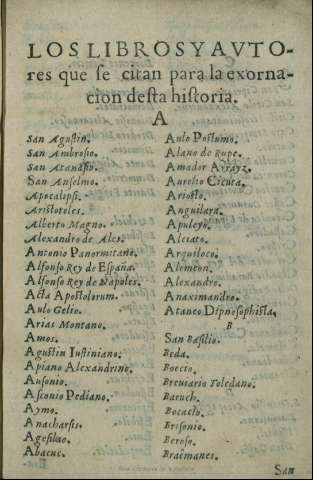 LOS LIBROS Y AVTO-
res que se citan para la exorna-
cion desta historia.
A
San Agustin.
San Ambrosio.
San Atanasio.
San Anselmo.
Apocalipsi.
Aristoteles.
Alberto Magno.
Alexandro de Ales.
Antonio Panormitano.
Alfonso Rey de España.
Alfonso Rey de Napoles.
Acta Apostolorum.
Aulo Gelio.
Arias Montano.
Amos.
Agustin Iustiniano.
Apiano Alexandrino.
Ausonio.
Asconio Pediano.
Aymo.
Anacharsis.
Agesilao.
Abacuc.
Aulo Postumo.
Alano de Rupe.
Amador Arrayz.
Aurelio Cicuta.
Ariosto.
Anguilara.
Apuleyo.
Alciato.
Arquiloco.
Alemeon.
Alexandro.
Anaximandro.
Ateneo Dipnosophista.
B
San Basilio.
Beda.
Boecio.
Breuiario Toledano.
Baruch.
Bocacio.
Brisonio.
Beroso.
Braemanes.
San